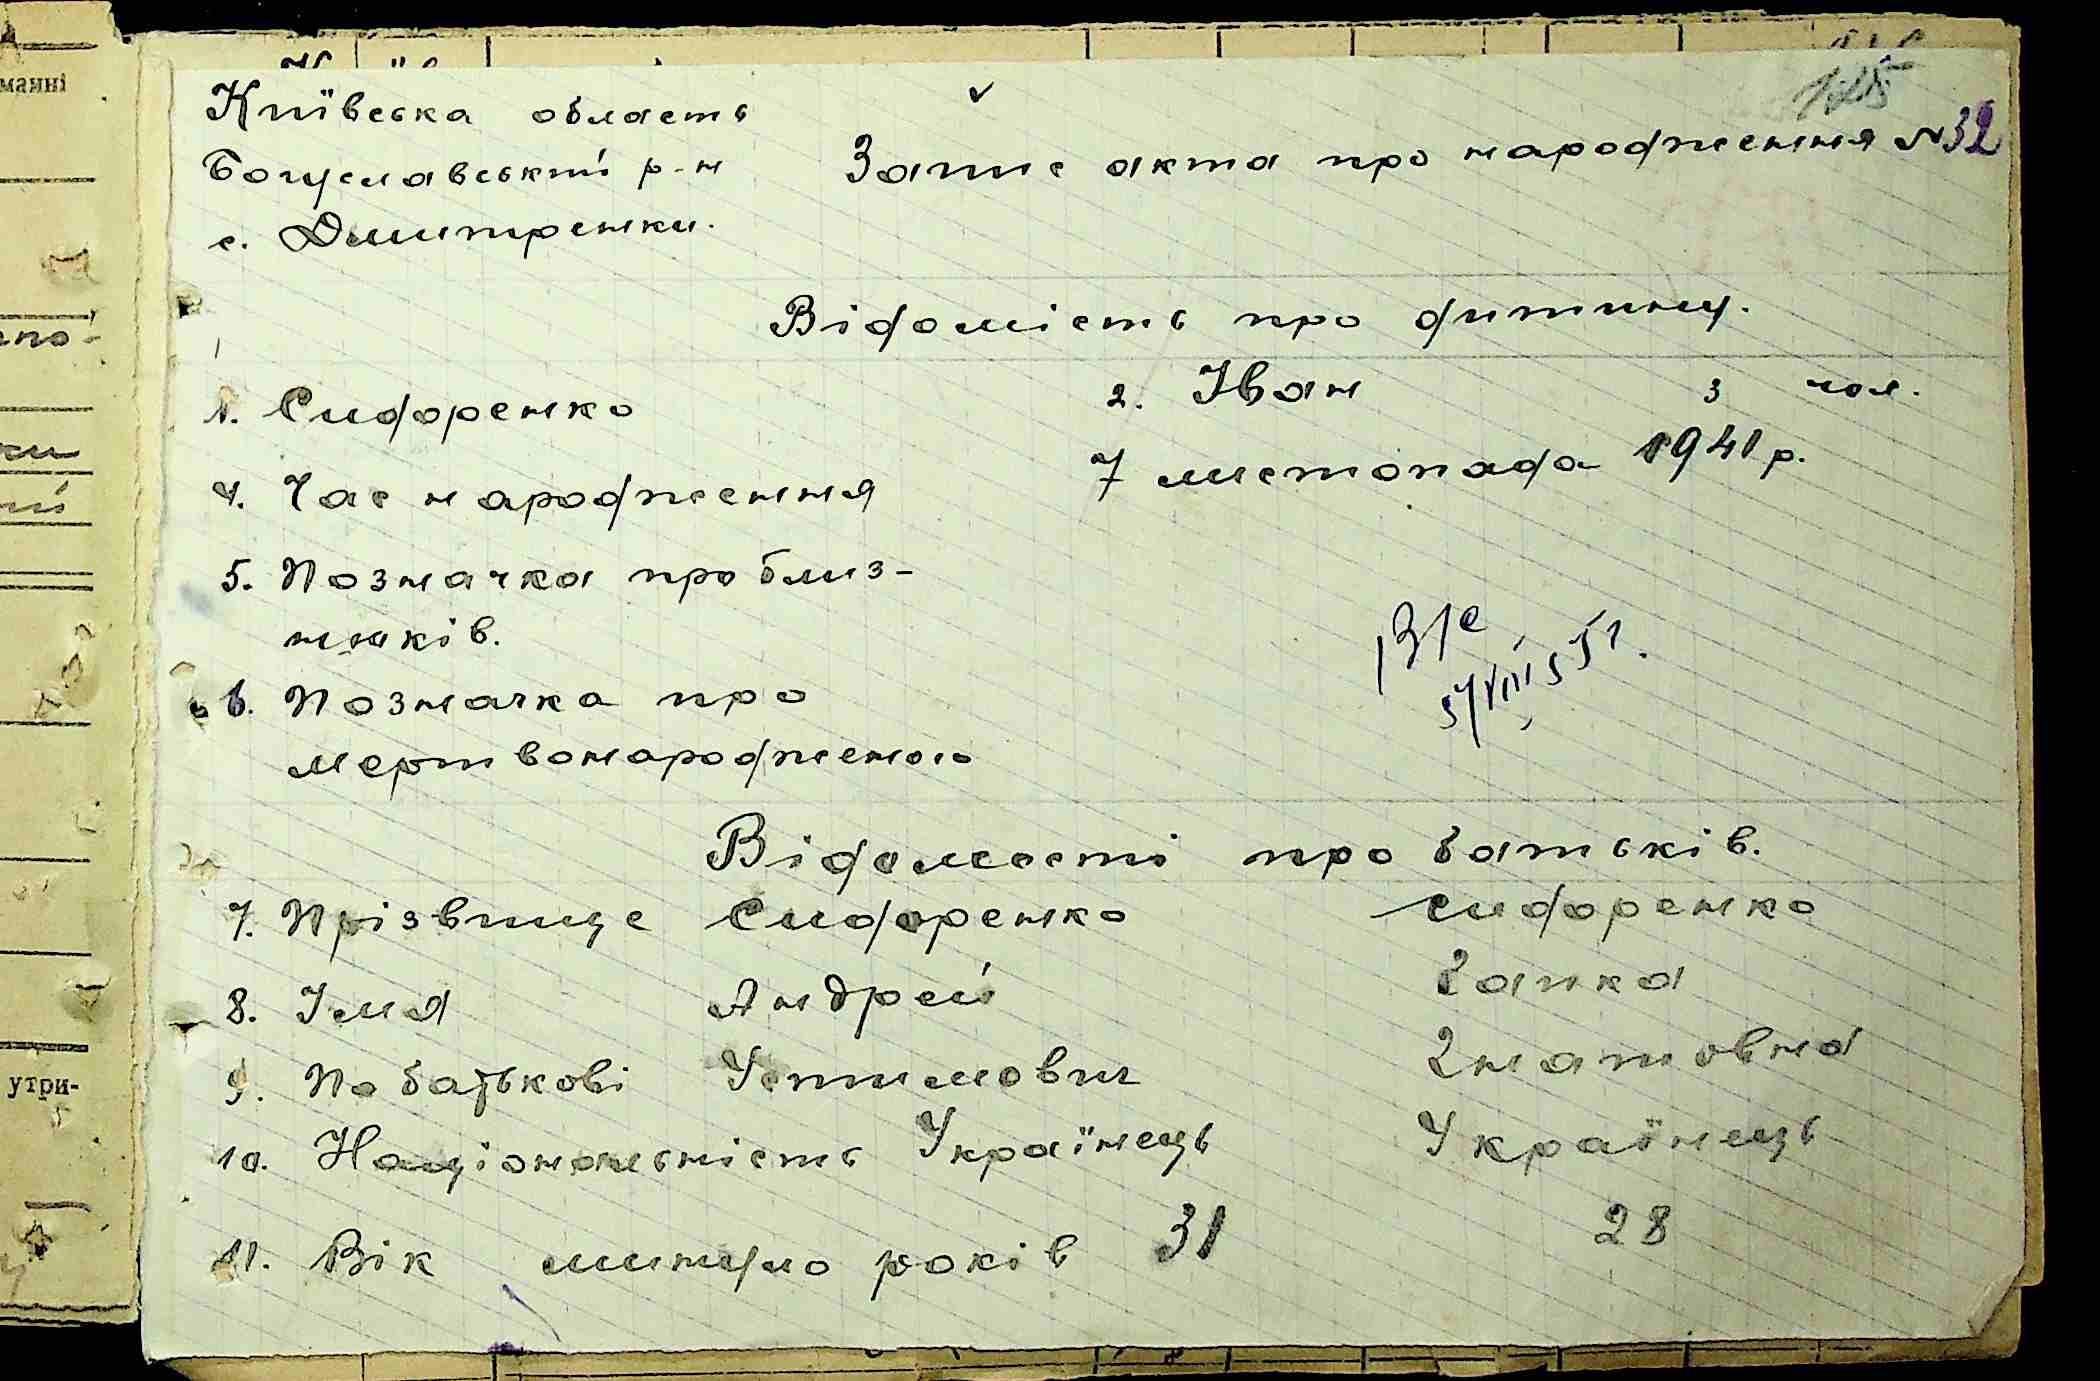 Київська область
Богуславський р-н
с. Дмитренки.
Запис акта про народження № 32
125
Відомість про дитину.
1. Сидоренко 2. Іван 3 чол.
4. Час народження 7 листопада 1941 р.
5. Позначка про близ-
нюків.
6. Позначка про
мертвонародженого
Відомості про батьків.
7. Прізвище Сидоренко Сидоренко
8. Імя Андрей Ганка
9. По батькові Устимович Гнатовна
10. Національність Українець Українець
11. Вік минуло років 31 28
манні
утри-